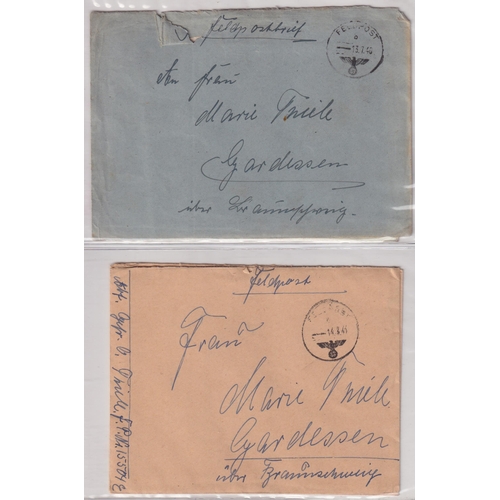 Feldpostbrief
FELDPOST
An Frau
Marie Thiele
Gardessen
über Braunschweig.
Feldpost
FELDPOST
Frau
Marie Thiele
Gardessen
über Braunschweig
Thiele, F.P.Nr.